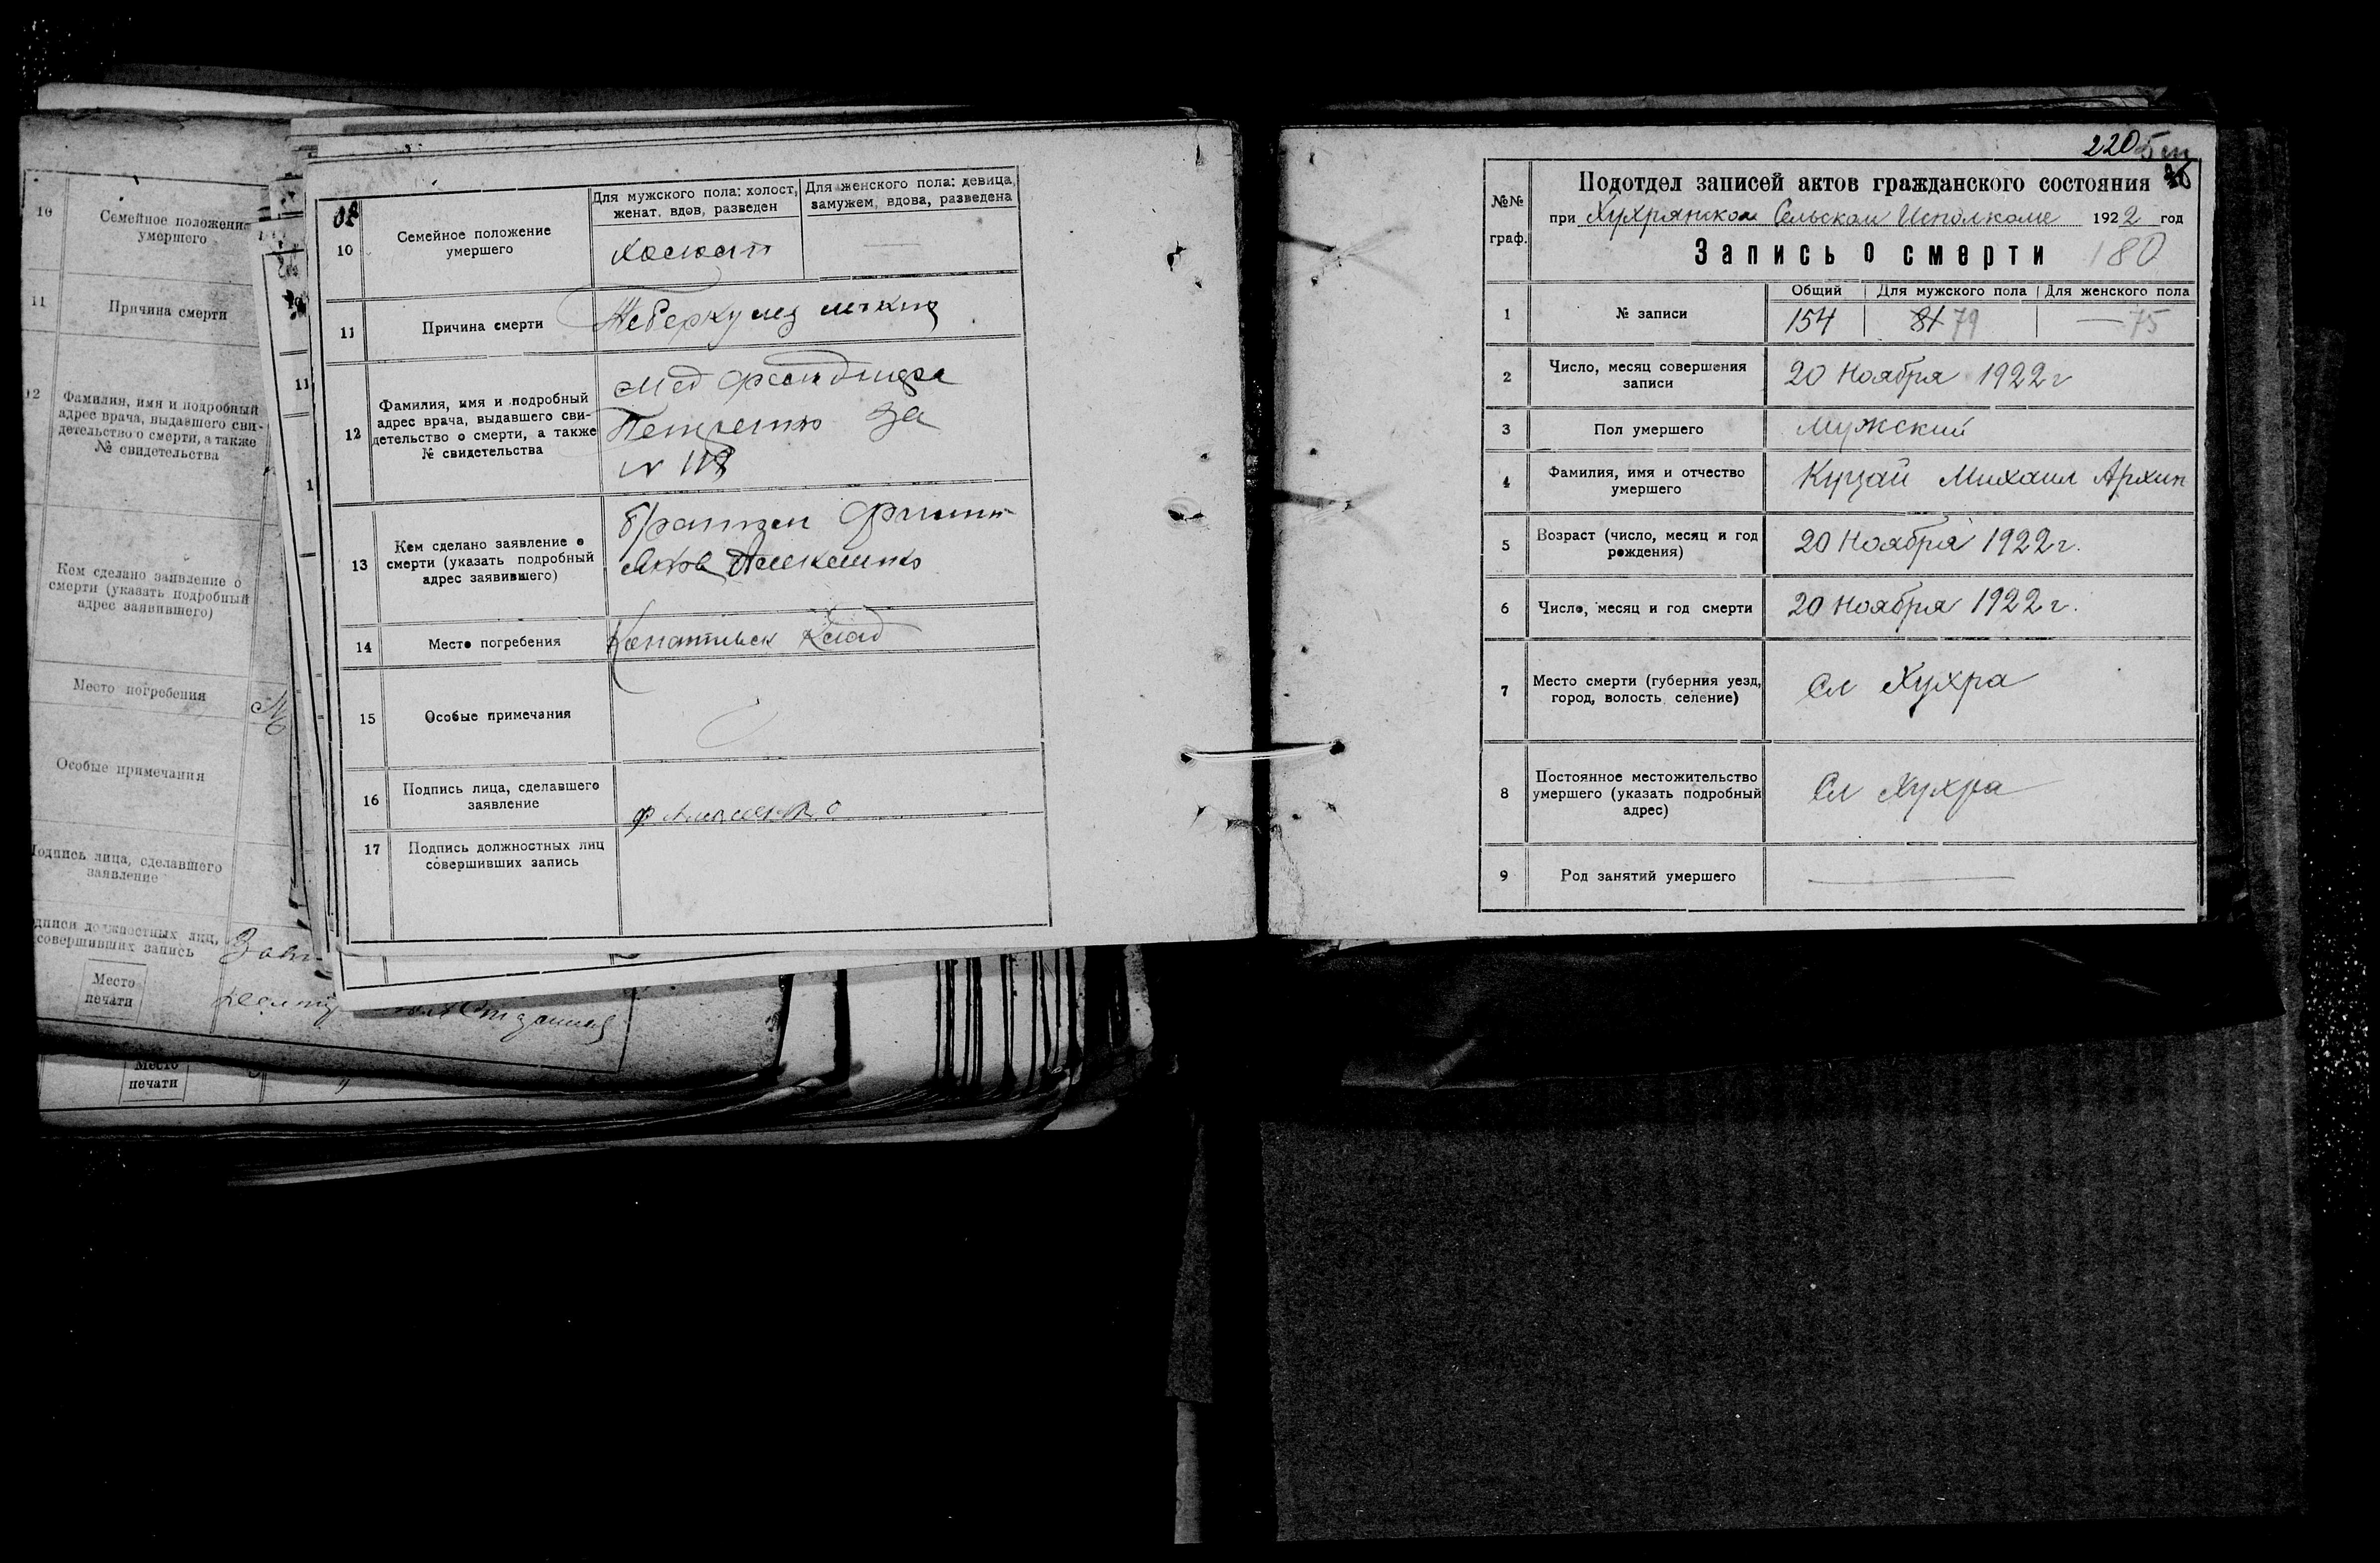 10
Семейное положение
умершего
11
Причина смерти
12
Фамилия, имя и подробный
адрес врача, выдавшего сви-
детельство о смерти, а также
№ свидетельства
Кем сделано заявление о
смерти (указать подробный
адрес заявившего)
Место погребения
Особые примечания
Подпись лица, сделавшего
заявление
совершивших запись
Место
печати
Место
печати
10
Семейное положение
умершего
Для мужского пола: холост,
женат, вдов, разведен
Для женского пола: девица,
замужем, вдова, разведена
Холост
11
Причина смерти
12
Фамилия, имя и подробный
адрес врача, выдавшего сви-
детельство о смерти, а также
№ свидетельства
Мед
Петренко За
13
Кем сделано заявление о
смерти (указать подробный
адрес заявившего)
Яков
14
Место погребения
Клад
15
Особые примечания
16
Подпись лица, сделавшего
заявление
17
Подпись должностных лиц
совершивших запись
220
№№
граф.
Подотдел записей актов гражданского состояния
при Хухрянском Сельском Исполкоме 1922 год
Запись о смерти 180
1
№ записи
Общий
Для мужского пола
Для женского пола
154
81 79
75
2
Число, месяц совершения
записи
20 Ноября 1922 г
3
Пол умершего
Мужский
4
Фамилия, имя и отчество
умершего
Куцай Михаил Архип
5
Возраст (число, месяц и год
рождения)
20 Ноября 1922 г.
6
Число, месяц и год смерти
20 Ноября 1922 г.
7
Место смерти (губерния уезд,
город, волость, селение)
Сл Хухра
8
Постоянное местожительство
умершего (указать подробный
адрес)
Сл Хухра
9
Род занятий умершего